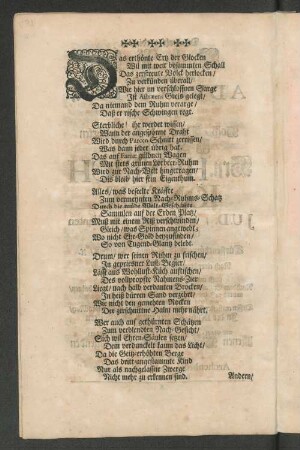 Das erthönte Ertz der Glocken
Wil mit weit bestimmten Schall
Das zerstreute Volck herlocken/
Zu verkünden überall/
Wie hier im verschloßnen Sarge
Ist gelegt/
Da niemand dem Ruhm verarge/
Daß er rasche Schwingen regt.
Sterbliche! ihr werdet wissen/
Wann der angespönnte Draht
Wird durch Schnitt zerrissen/
Was dann jeder übrig hat.
Das auff güldnen Wagen
Mit stets grünen Lorbeer-Ruhm
Wird zur Nach-Welt hingetragen/
Diß bleibt hier sein Eigenthum.
Alles/ was beseelte Kräffte
Zum vermeynten Nach-Ruhms-Schatz
Durch die
Sammlen auf der Erden Platz/
Muß mit einem Riß verschwinden/
Gleich/ was Spinnen angewebt/
Wo nicht Ehr-Gold beyzufinden/
So von Tugend-Glantz belebt.
Drum/ wer seinen Ruhm zu faschen/
In gepriesner Lust Begier/
Läst aus Wohllust-Küch auftischen/
Des vollpropfte Nahmens-Zier
Liegt/ nach halb verdauten Brocken/
In heiß dürren Sand verzehrt/
Wie nicht den gemehten Rocken
Der zerschnittne Halm mehr nährt.
Wer auch auf gethürmten Schätzen
Zum verblendten Nach-Gesicht/
Sich wil Ehren-Säulen setzen/
Dem verdunckelt kaum das Licht/
Da die Geitz-erhöhten Berge
Das dritt-angestammte Kind
Nur als nachgelassne Zwerge
Nicht mehr zu erkennen sind.
Andern/